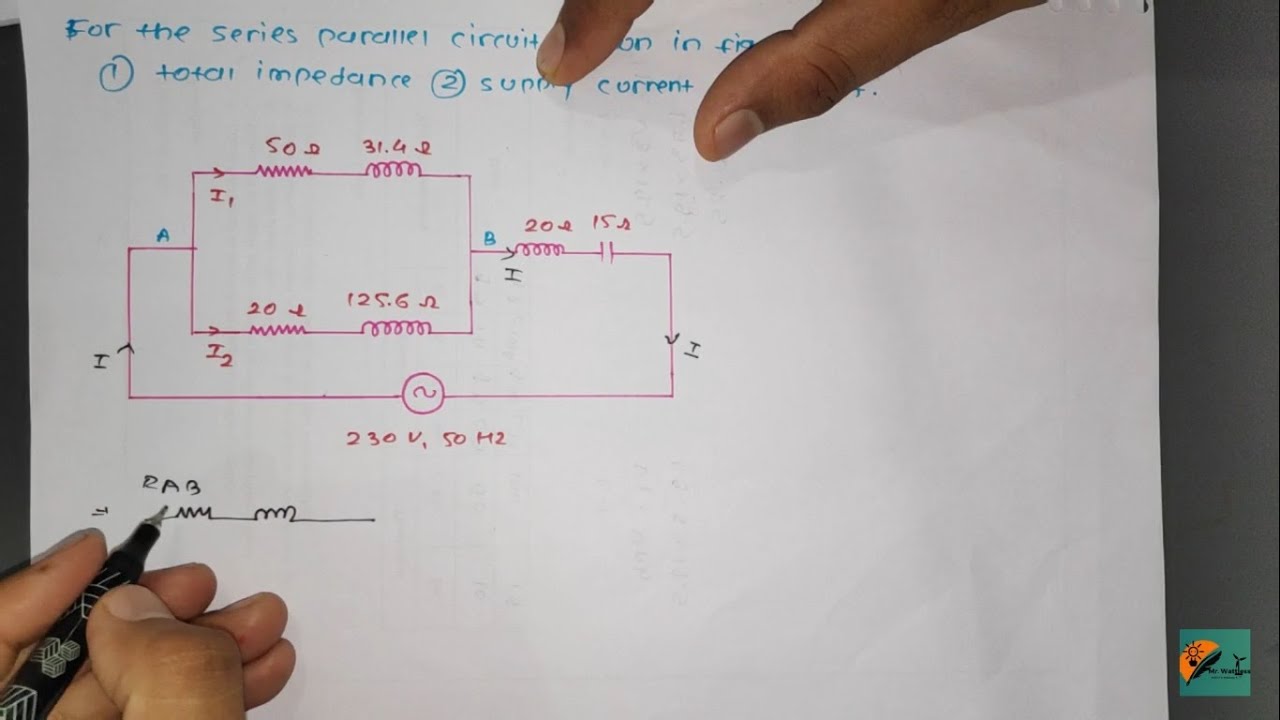 For the series parallel circuit in
① total impedance ② supply current
50Ω 31.4Ω
I1
A
B
20Ω 15Ω
I
20Ω 125.6Ω
I2
I
I
230 V, 50 HZ
RAB
=
Mr. Wattless